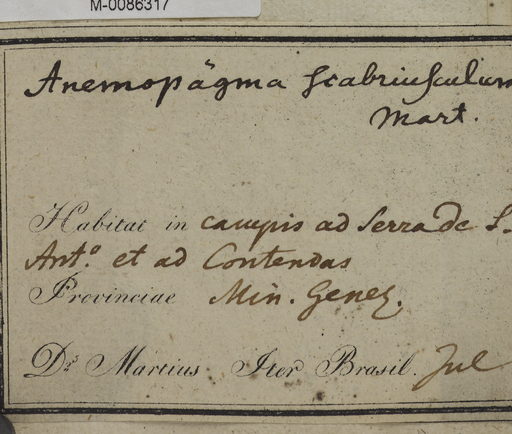 M-0086317
Anemopägma scabriusculum
Mart.
Habitat in campis ad Serra de S.
Ant.o et ad Contendas
Provinciae Min. Genez.
Dr. Martius Iter Brasil. Jul